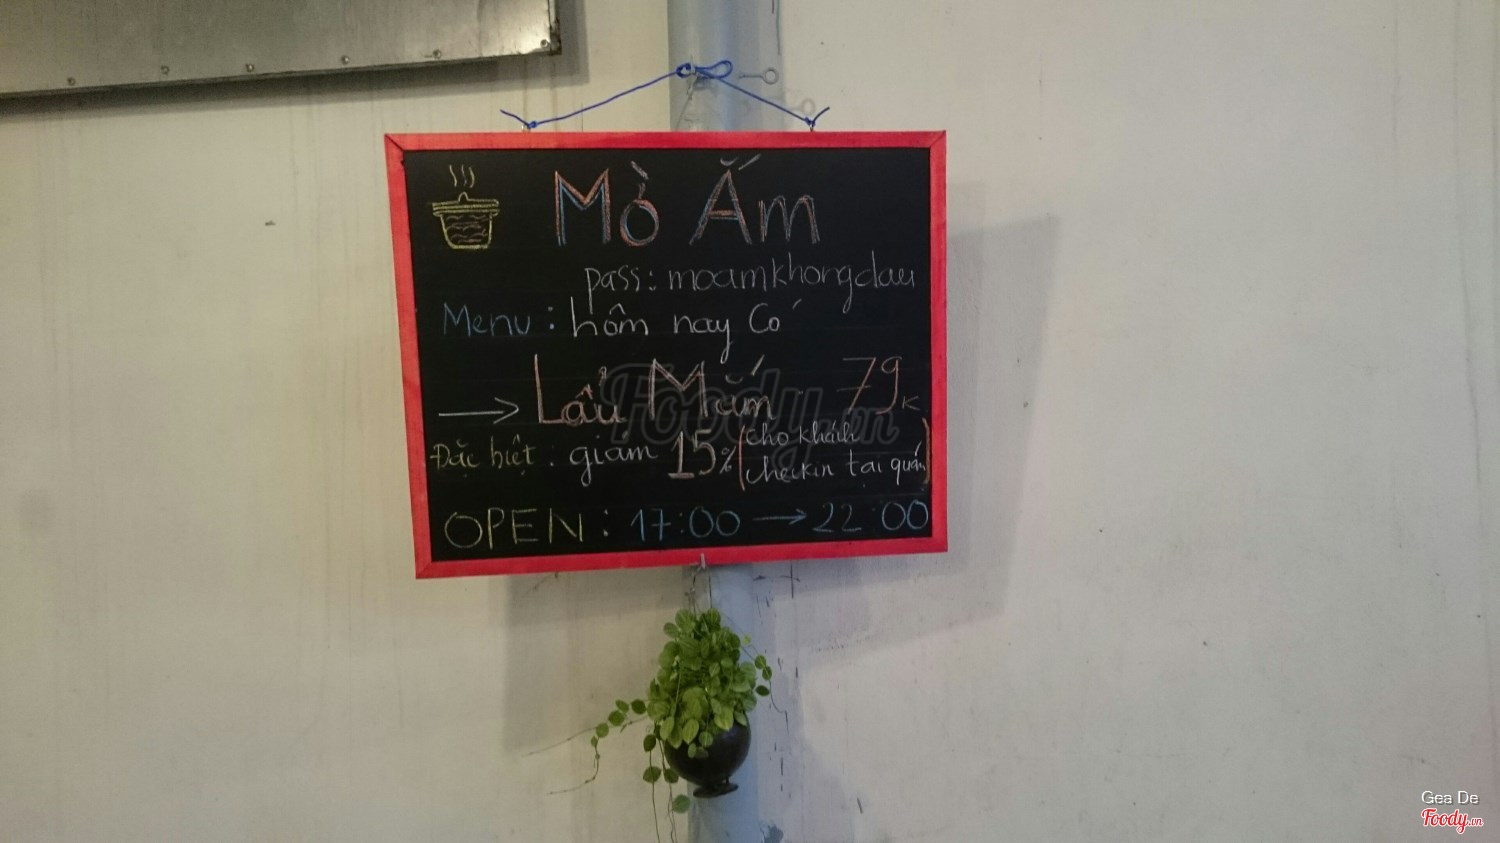 Mò Ắm
pass: moamkhongdau
Menu: hôm nay Có
→ Lẩu Mắm 79K
Đặc biệt: giảm 15% (cho khách
checkin tại quán)
OPEN: 17:00 → 22:00
Foody.vn
Gea De
Foody.vn